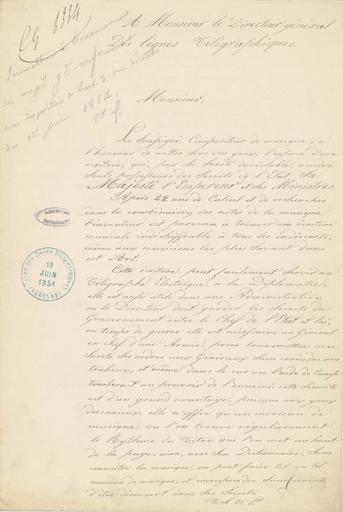 A Monsieur le Directeur général
Des lignes Télégraphiques.
Monsieur,
Le Soussigné, Compositeur de musique, a
l'honneur de mettre sous vos yeux, l'exposé d'une
écriture, qui, par sa Sureté inviolable, rendra
seuls possesseurs des Secrets de l'Etat Sa
Majesté l'Empereur et ses Ministres.
Après 22 ans de Calcul et de recherches
dans la combinaison des notes de la musique
l'inventeur est parvenu à trouver une écriture
musicale indéchiffrable à tous les indiscrets,
même aux musiciens les plus savant dans
cet Art.
Cette écriture, peut facilement servir au
Télégraphe Electrique, à la Diplomatie,
elle est aussi utile dans une Administration
ou le Directeur doit garder les Secrets du
Gouvernement entre le Chef de l'Etat et lui,
en temps de guerre elle est nécessaire au Général
en chef d'une Armée, pour transmettre avec
Sureté ses ordres aux Généraux sans craindre une
trahison, et même dans le cas ou l'aide de Camp
tomberait au pouvoir de l'ennemi; cette écriture
est d'un grand avantage, puisque aux yeux
des curieux, elle n'offre qu'un morceau de
musique, ou l'on trouve régulièrement
le Rythme du Titre que l'on met au haut
de la page; ainsi, avec son Dictionnaire, Sans
connaître la musique, on peut faire tel ou tel
morceau de musique, et correspondre sans crainte
d'être découvert dans ses Secrets.
13
JUIN
1854